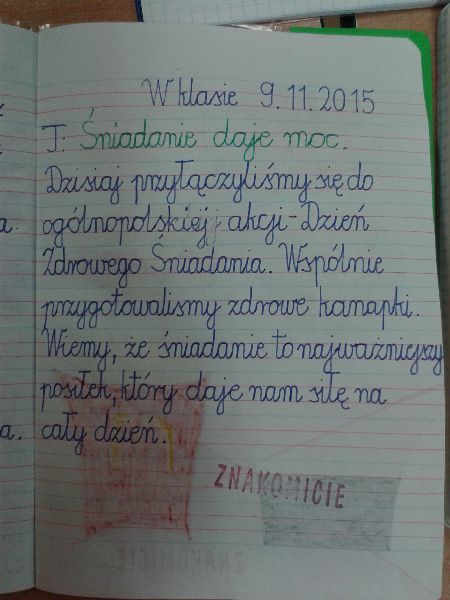 W klasie 9.11.2015
T: Śniadanie daje moc.
Dzisiaj przyłączyliśmy się do
ogólnopolskiej akcji-Dzień
Zdrowego Śniadania. Wspólnie
przygotowaliśmy zdrowe kanapki.
Wiemy, że śniadanie to najważniejszy
posiłek, który daje nam siłę na
cały dzień.
ZNAKOMICIE
ZNAKOMICIE